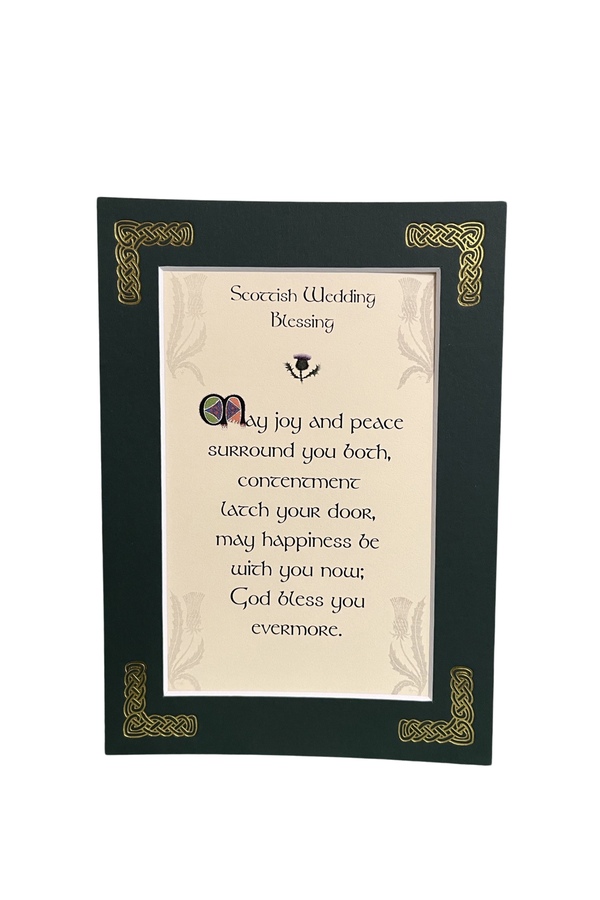 Scottish Wedding
Blessing
May joy and peace
surround you both,
contentment
latch your door,
may happiness be
with you now;
God bless you
evermore.